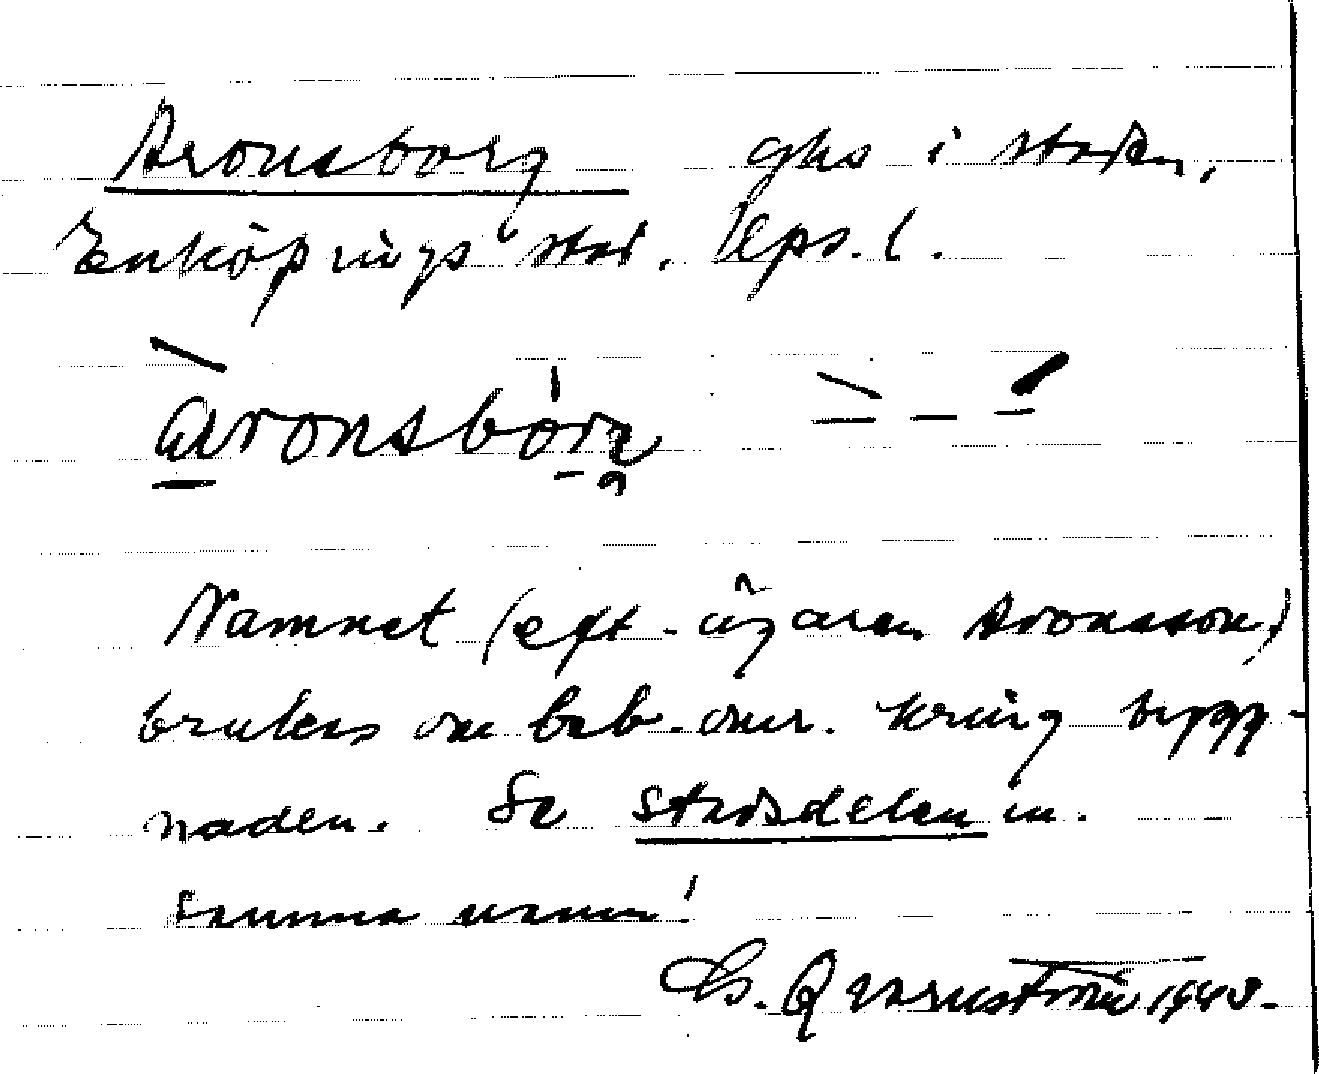 Aronsborg ghs i staden,
Enköpings stad. Ups. l.
aronsbårg
Namnet (eft. ägaren Aronsson)
brukas om beb. omr. kring bygg-
naden. Se stadsdelen m.
samma namn!
Qvarnström 1943.